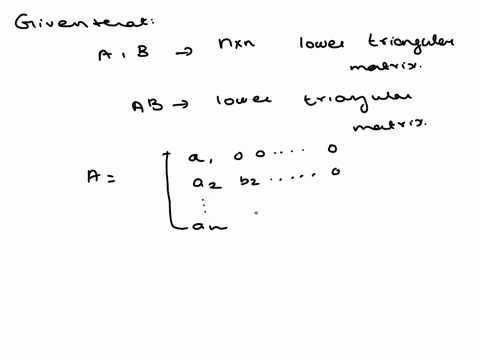 Given that:
A, B → nxn lower triangular
matrix.
AB → lower triangular
matrix.
a1 0 0 .... 0
A = a2 b2 ..... 0
⋮
an .